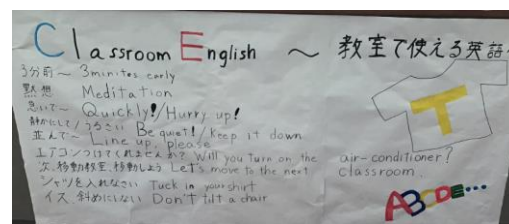 Classroom English ～ 教室で使える英語
3分前～ 3minites early
黙想 Meditation
急いで～ Quickly!/Hurry up!
静かにして/うるさい Be quiet!/keep it down
並んで～ Line up, please
エアコンつけてくれませんか? Will you turn on the air-conditioner?
次、移動教室、移動しよう Let's move to the next classroom.
シャツを入れなさい Tuck in your shirt
イス、斜めにしない Don't tilt a chair
T
ABCDE...